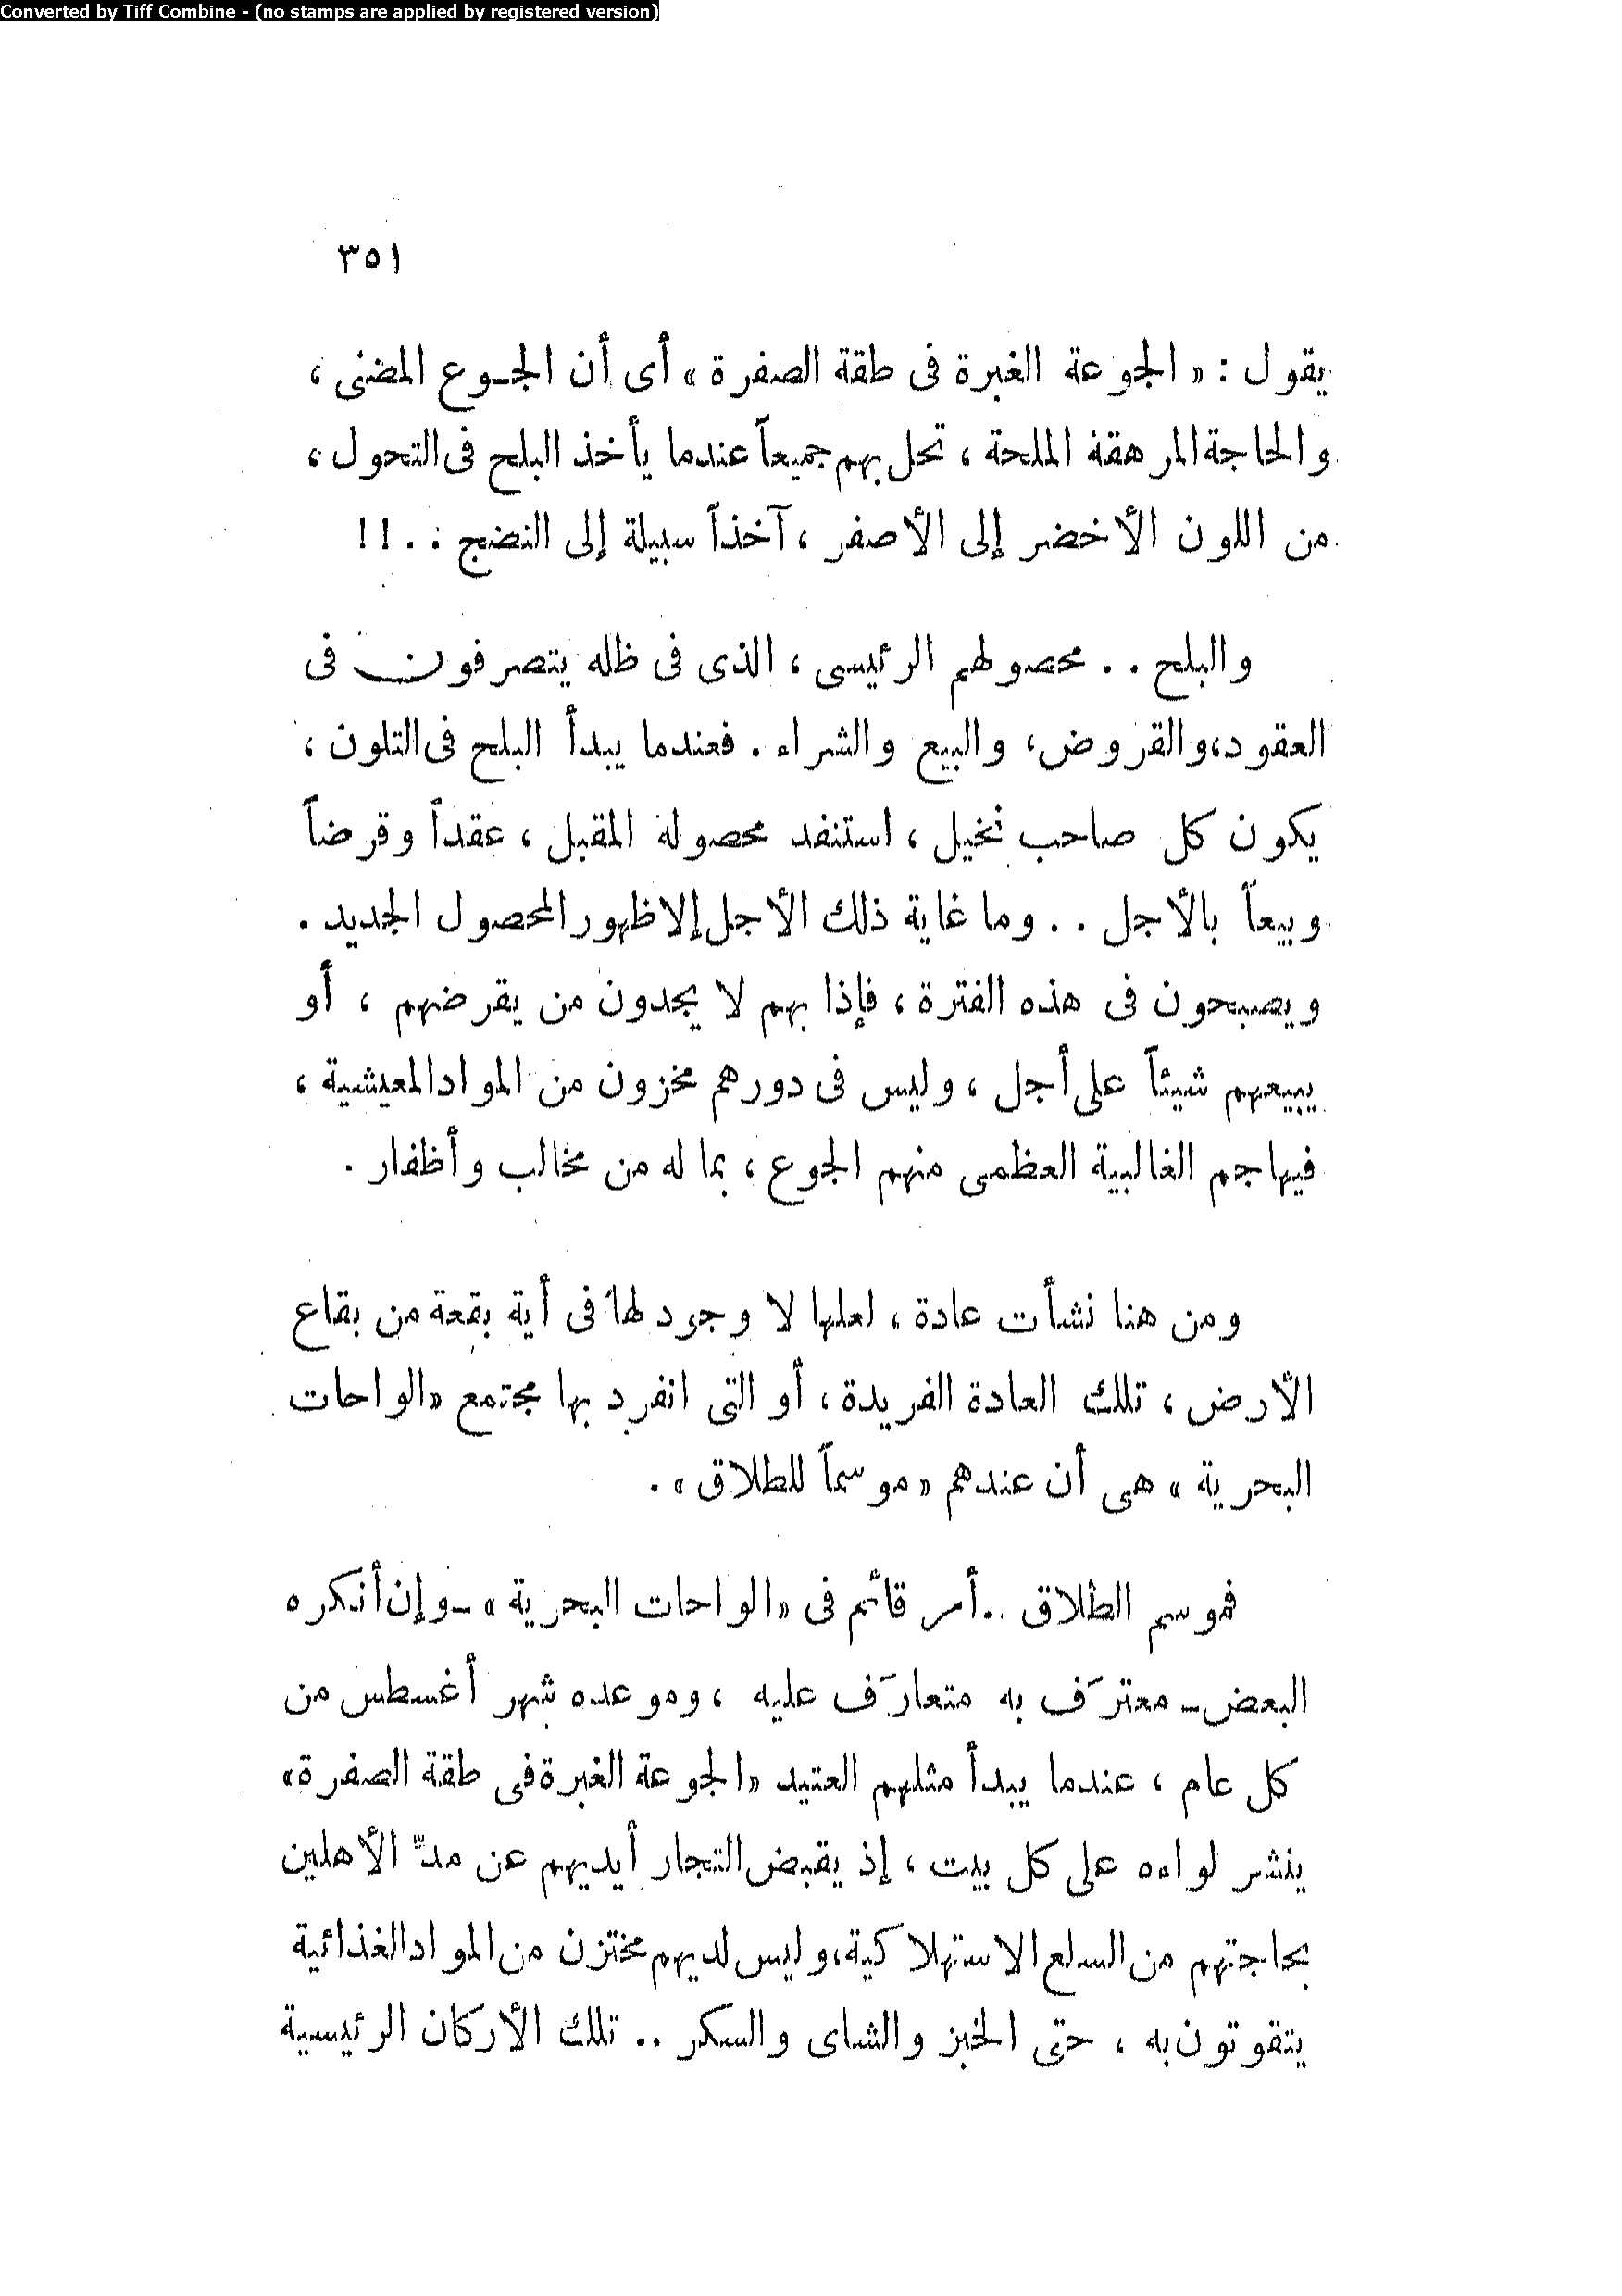 Converted by Tiff Combine - (no stamps are applied by registered version)
٣٥١
يقول : « الجوعة الغبرة فى طقة الصفرة » أى أن الجوع المضنى ،
والحاجة المرهقة الملحة ، تحل بهم جميعاً عندما يأخذ البلح فى التحول ،
من اللون الأخضر إلى الأصفر ، آخذاً سبيلة إلى النضج . . !!
والبلح . . محصولهم الرئيسى ، الذى فى ظله يتصرفون فى
العقود، والقروض، والبيع والشراء . فعندما يبدأ البلح فى التلون ،
يكون كل صاحب نخيل ، استنفد محصوله المقبل ، عقداً وقرضاً
وبيعاً بالأجل . . وما غاية ذلك الأجل إلا ظهور المحصول الجديد .
ويصبحون فى هذه الفترة ، فإذا بهم لا يجدون من يقرضهم ، أو
يبيعهم شيئاً على أجل ، وليس فى دورهم مخزون من المواد المعيشية ،
فيهاجم الغالبية العظمى منهم الجوع ، بما له من مخالب وأظفار .
ومن هنا نشأت عادة ، لعلها لا وجود لها فى أية بقعة من بقاع
الأرض ، تلك العادة الفريدة ، أو التى انفرد بها مجتمع «الواحات
البحرية » هى أن عندهم « موسماً للطلاق » .
فموسم الطلاق .. أمر قائم فى «الواحات البحرية» - وإن أنكره
البعض - معترَف به متعارَف عليه ، وموعده شهر أغسطس من
كل عام ، عندما يبدأ مثلهم العتيد «الجوعة الغبرة فى طقة الصفرة»
ينشر لواءه على كل بيت ، إذ يقبض التجار أيديهم عن مدّ الأهلين
بحاجتهم من السلع الاستهلاكية، وليس لديهم مختزن من المواد الغذائية
يتقوتون به ، حتى الخبز والشاى والسكر .. تلك الأركان الرئيسية